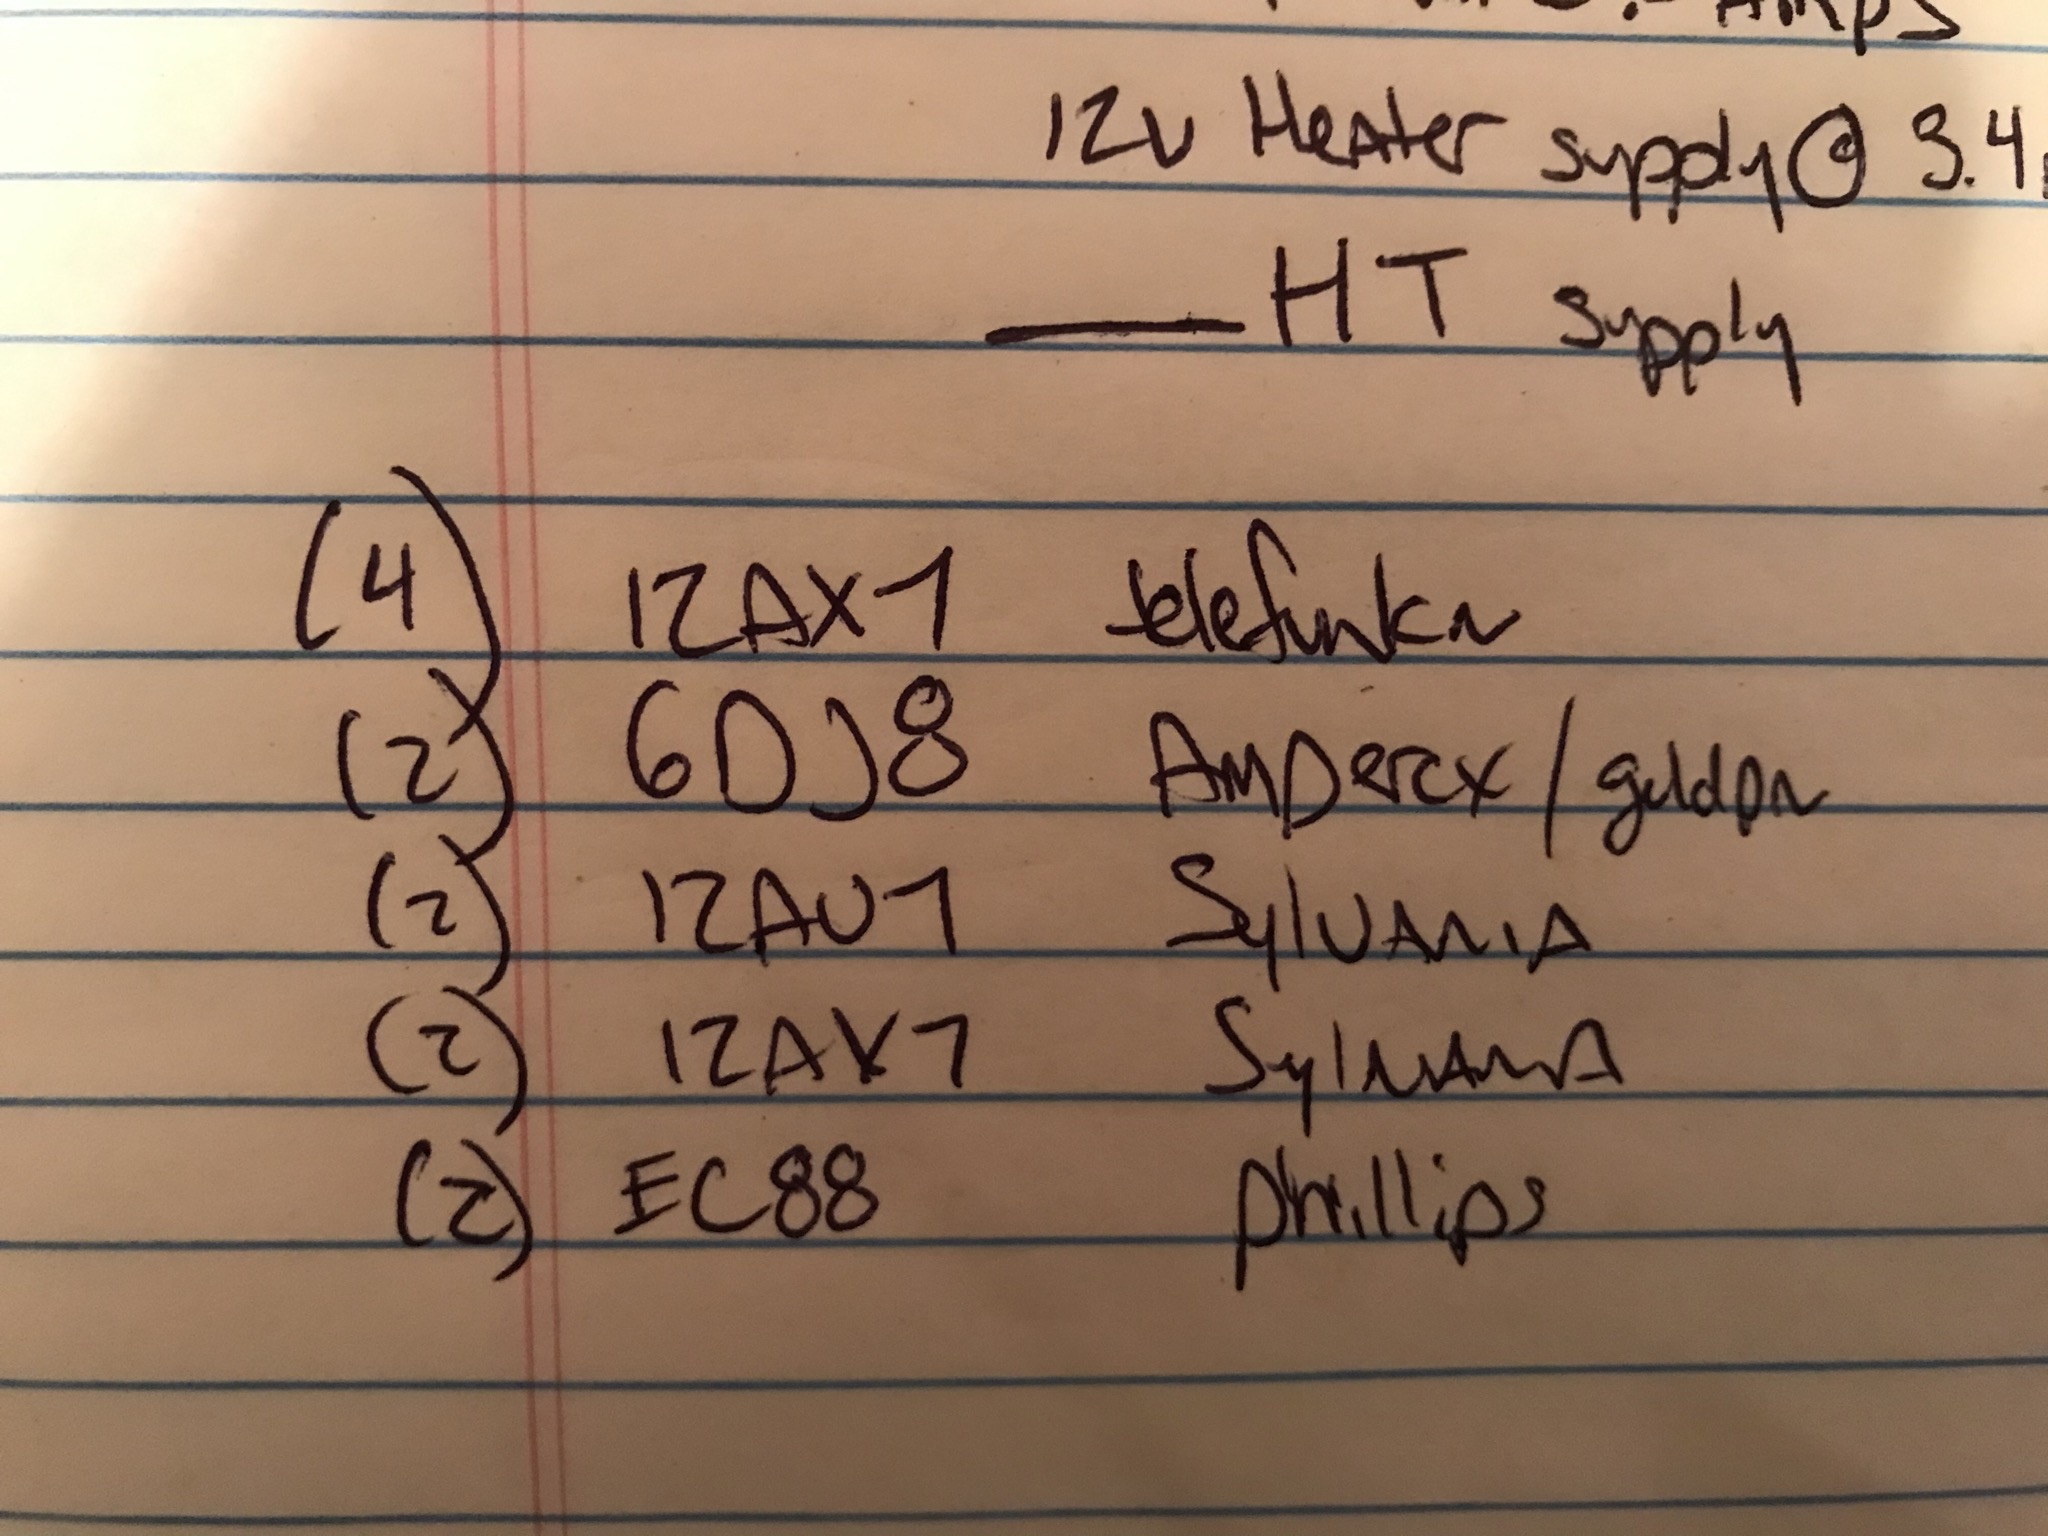 Amps
12v Heater supply @ 3.4
HT supply
(4) 12AX7 telefunkn
(2) 6DJ8 Amperex / goldpn
(2) 12AU7 Sylvania
(2) 12AX7 Sylvania
(2) EC88 phillips